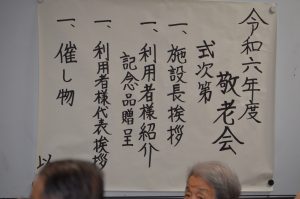 令和六年度
敬老会
式次第
一、施設長挨拶
一、利用者様紹介
記念品贈呈
一、利用者様代表挨拶
一、催し物
以